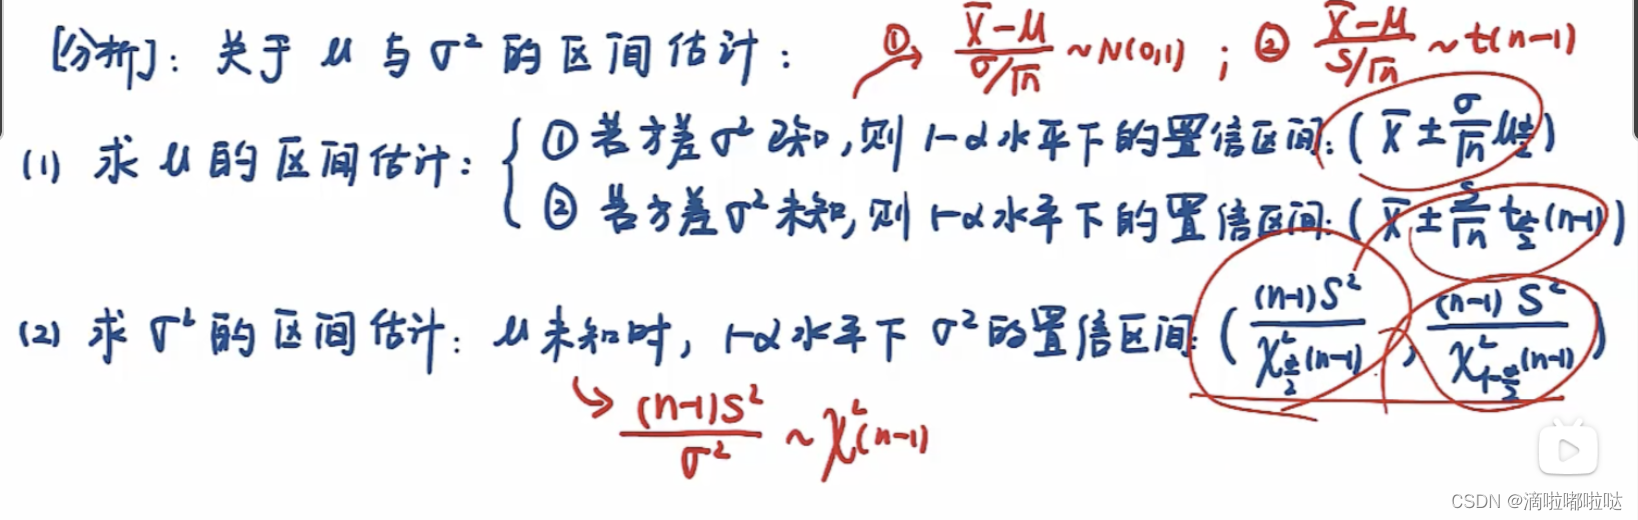 [分析]: 关于 μ 与 σ² 的区间估计: ① (X̄-μ)/(σ/√n) ~ N(0,1) ; ② (X̄-μ)/(S/√n) ~ t(n-1)
(1) 求 μ 的区间估计:
① 若方差 σ² 已知,则 1-α 水平下的置信区间: (X̄ ± σ/√n μ_{α/2})
② 若方差 σ² 未知,则 1-α 水平下的置信区间: (X̄ ± S/√n t_{α/2}(n-1))
(2) 求 σ² 的区间估计: μ 未知时, 1-α 水平下 σ² 的置信区间: ((n-1)S²/χ²_{α/2}(n-1), (n-1)S²/χ²_{1-α/2}(n-1))
(n-1)S²/σ² ~ χ²(n-1)
CSDN @滴啦嘟啦哒